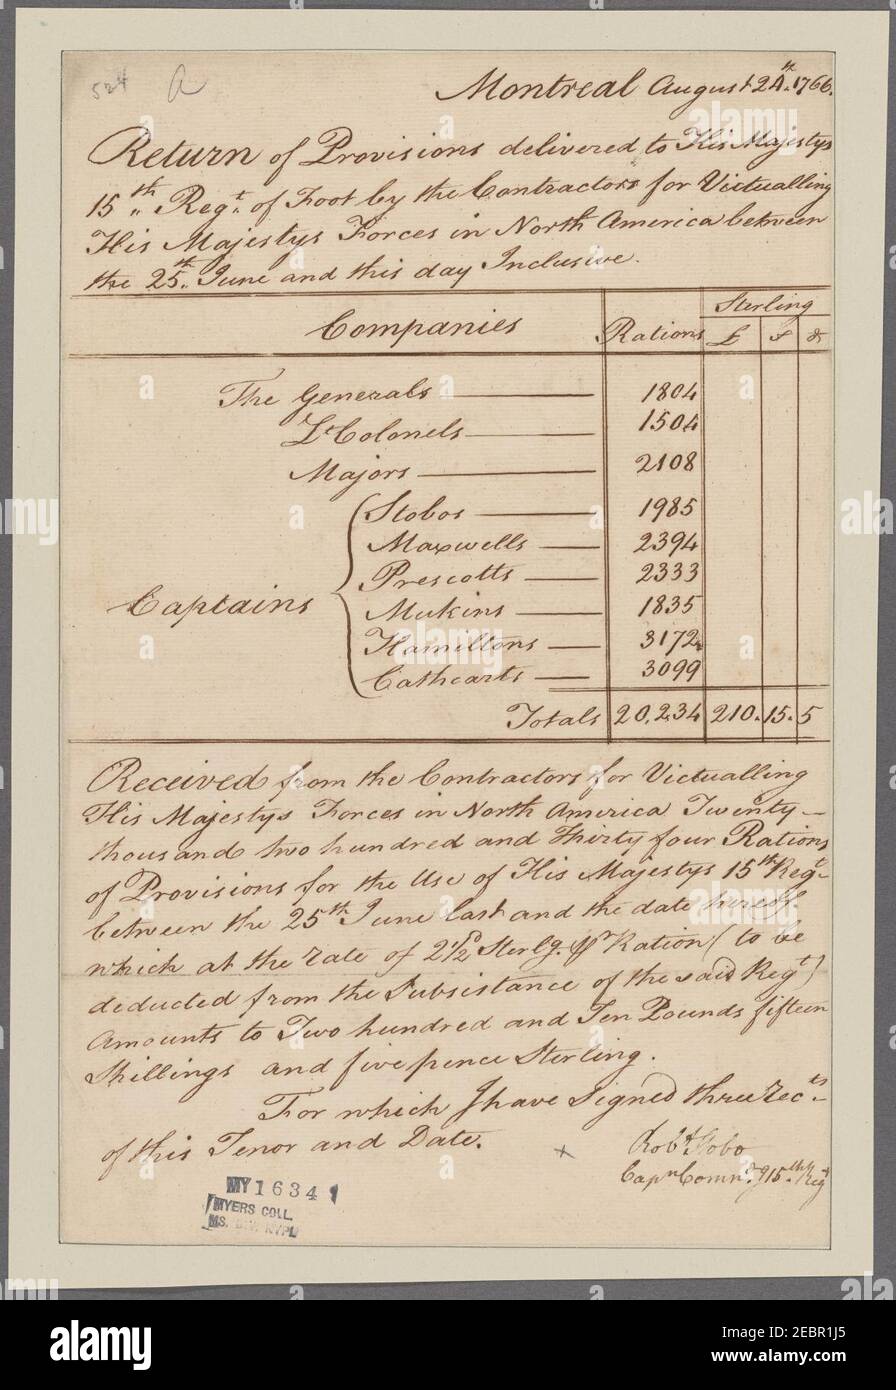 524 a
Montreal August 24th. 1766.
Return of Provisions delivered to His Majestys
15th,, Regt. of Foot by the Contractors for Victualling
His Majestys Forces in North America between
the 25th. June and this day Inclusive.
Companies Rations Sterling
£ s d
The Generals 1804
Lt Colonels 1504
Majors 2108
Captains
Stobos 1985
Maxwells 2394
Prescotts 2333
Mukins 1835
Hamiltons 3172
Cathcarts 3099
Totals 20,234 210. 15. 5
Received from the Contractors for Victualling
His Majestys Forces in North America Twenty
thousand two hundred and Thirty four Rations
of Provisions for the Use of His Majestys 15th Regt.
between the 25th. June last and the date hereof
which at the rate of 2 1/2 d Sterlg. pr Ration (to be
deducted from the Subsistance of the said Regt)
Amounts to Two hundred and Ten Pounds fifteen
Shillings and five pence Sterling.
For which I have Signed three Rects.
of this Tenor and Date. x
Robt Stobo
Capn Commdg 15th Regt
MY 1634
MYERS COLL.
MS. DIV. NYPL
alamy
Image ID: 2EBR1J5
www.alamy.com